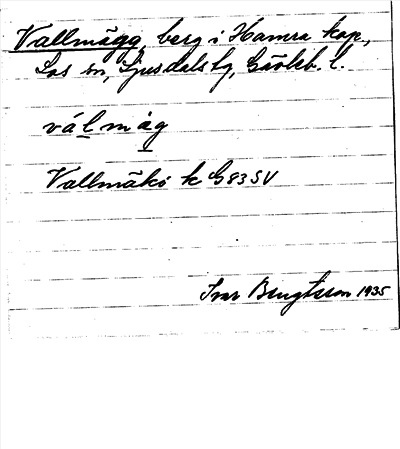 Vallmägg, berg i Hamra kap.,
Los sn, Ljusdals tg, Gävleb. l.
válmàg
Vallmäkö k G 83 SV
Ivar Bengtsson 1935